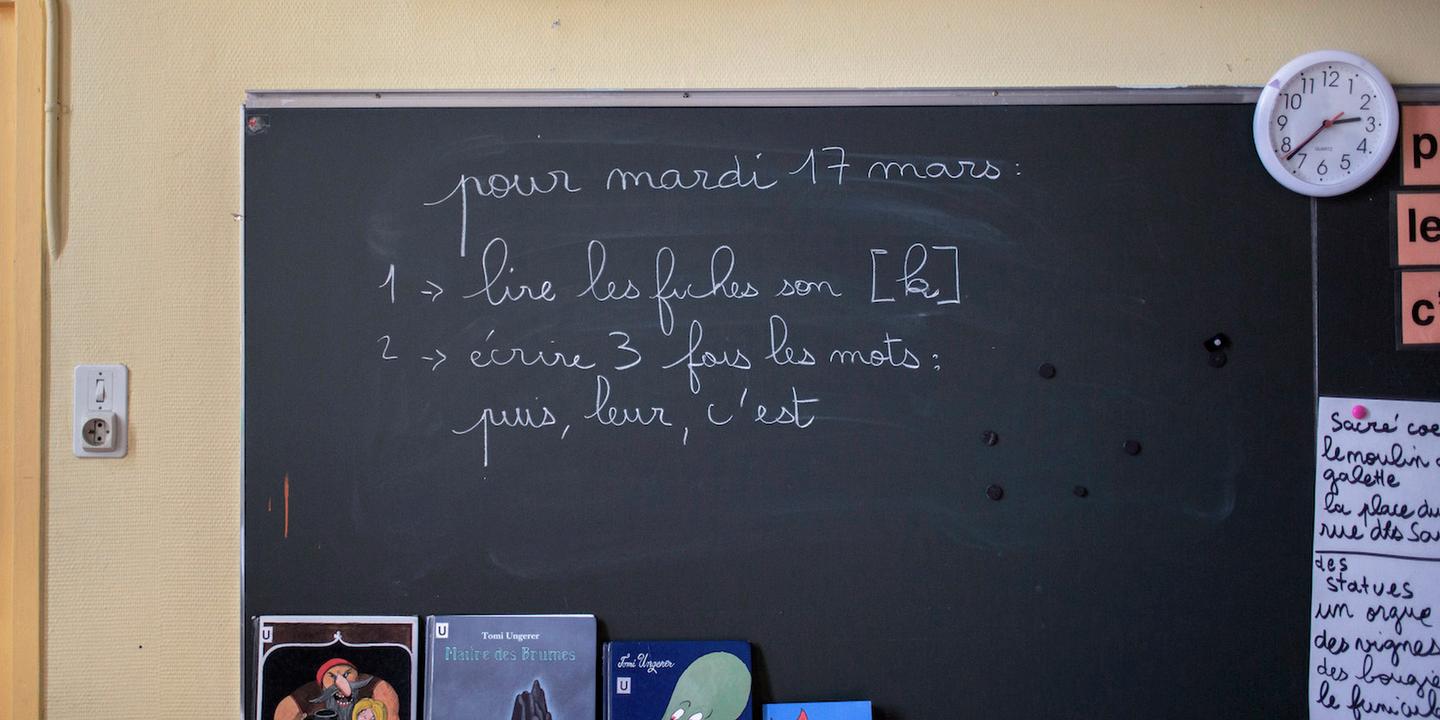 pour mardi 17 mars :
1 -> lire les fiches son [k]
2 -> écrire 3 fois les mots :
puis, leur, c'est
12
1
2
3
4
5
6
7
8
9
10
11
QUARTZ
p
le
c'
Sacré coe
le moulin
galette
la place du
rue des Sa
des
statues
un orgue
des vignes
des bougie
le funicul
U
U
Tomi Ungerer
Maître des Brumes
Tomi Ungerer
U